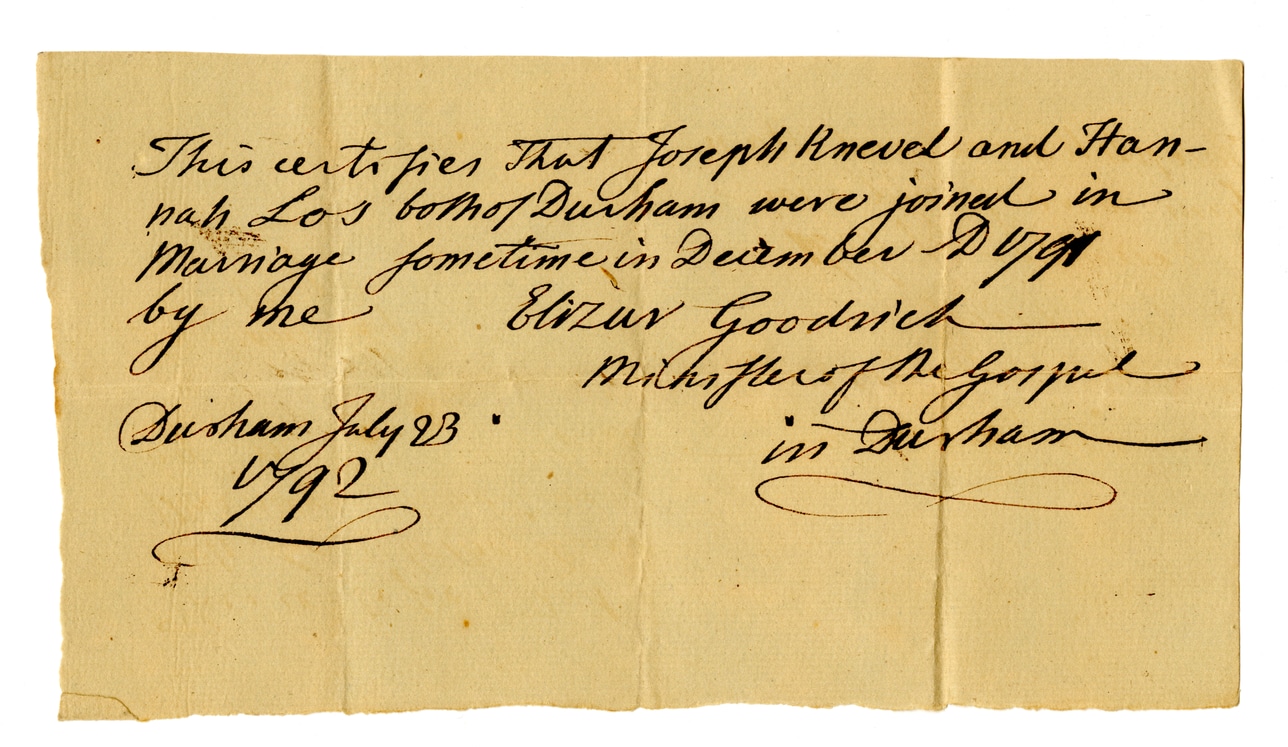 This certifies That Joseph Knevel and Han-
nah Los both of Durham were joined in
Marriage sometime in December AD 1791
by me Elizur Goodrich
Minister of the Gospel
in Durham
Durham July 23
1792